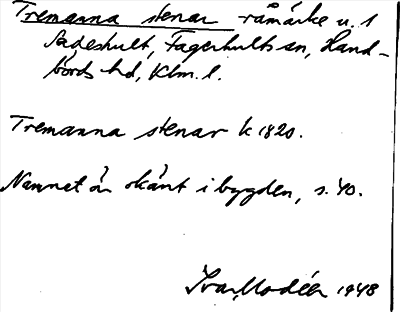 Tremanna stenar råmärke u. 1
Sådeshult, Fagerhults sn, Hand-
börds hd, Klm. l.
Tremanna stenar k 1820.
Namnet är okänt i bygden, s. 40.
Ivar Modéer 1948